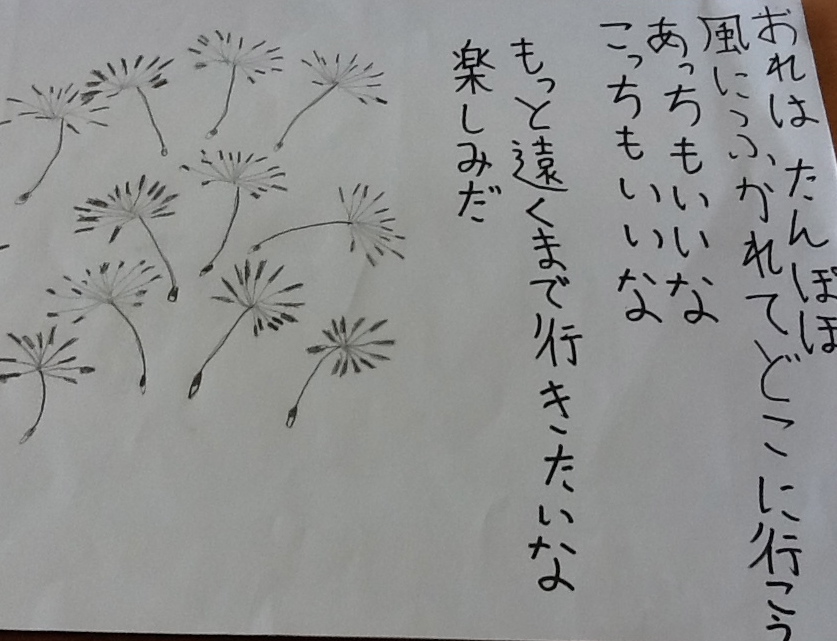 おれは たんぽぽ
風にふかれてどこに行こう
あっちもいいな
こっちもいいな
もっと遠くまで行きたいな
楽しみだ